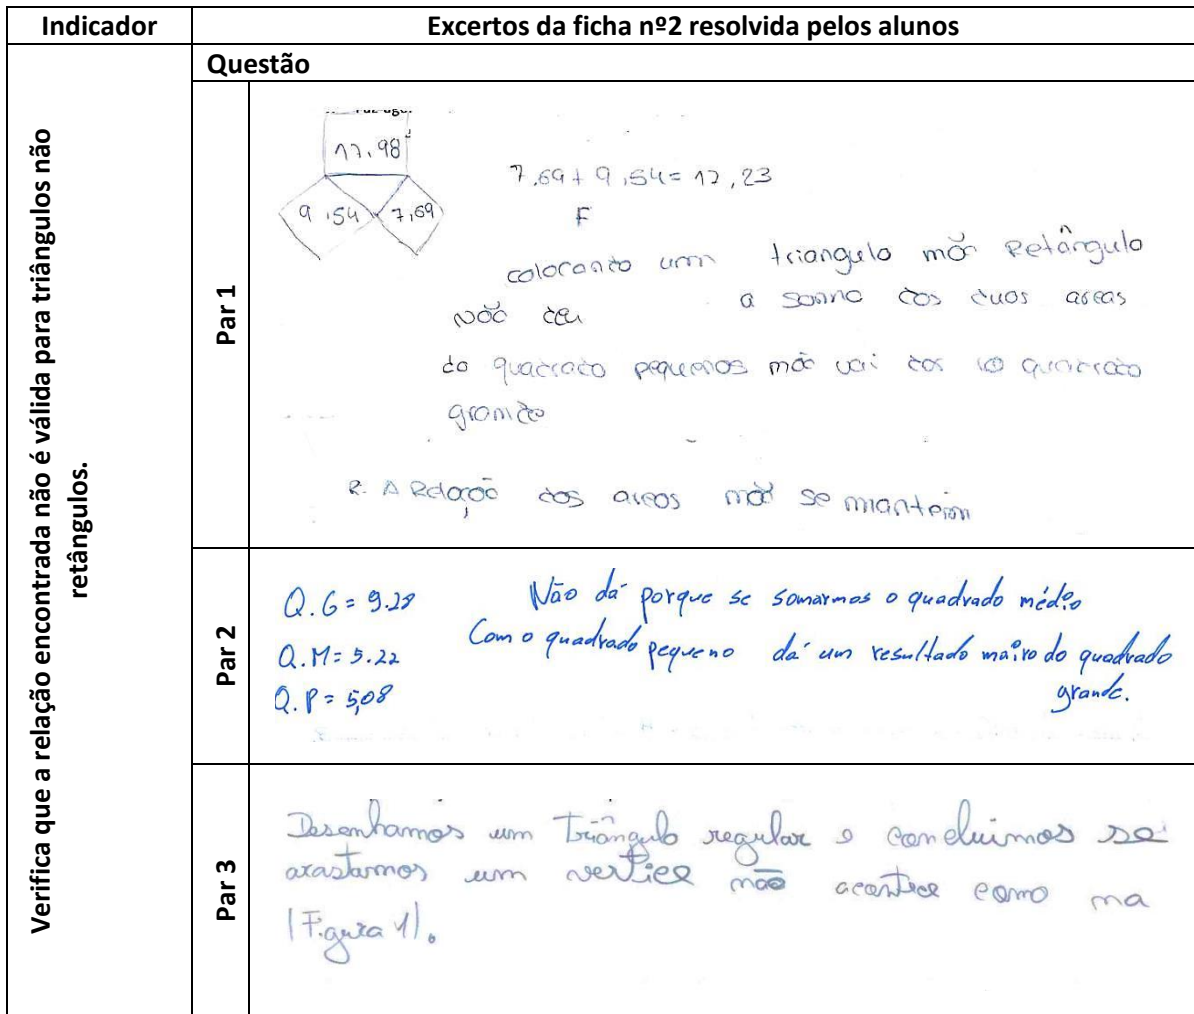 Indicador
Excertos da ficha nº2 resolvida pelos alunos
Verifica que a relação encontrada não é válida para triângulos não
retângulos.
Questão
Par 1
17,98
9,54
7,69
7,69 + 9,54 = 17,23
F
colocando um triangulo não Retângulo
não deu a soma dos duas areas
do quadrado pequenos não vai dos quadrado
grande
R. A Relação dos areas não se mantem
Par 2
Q.G = 9.28
Q.M = 5.22
Q.P = 5,08
Não dá porque se somarmos o quadrado médio
Com o quadrado pequeno dá um resultado maíro do quadrado
grande.
Par 3
Desenhamos um Triângulo regular e concluimos se
arastarmos um vertice não acontece como na
(Figura 1).